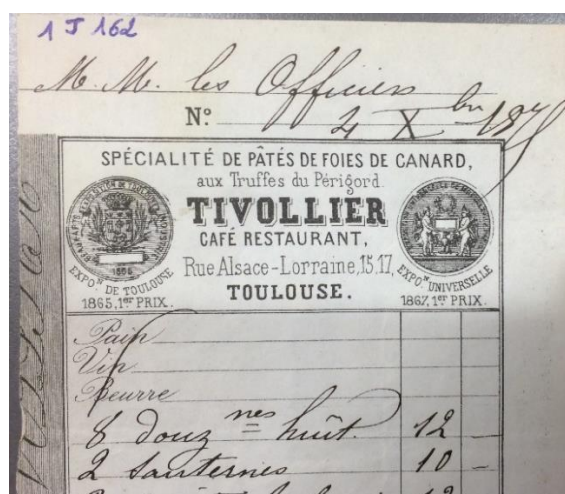 1 J 162
M. M. les Officiers
N° 4 Xbre 187
SPÉCIALITÉ DE PÂTÉS DE FOIES DE CANARD,
aux Truffes du Périgord.
TIVOLLIER
CAFÉ RESTAURANT,
Rue Alsace-Lorraine, 15.17,
TOULOUSE.
1865
EXPO.ON DE TOULOUSE
1865, 1ER PRIX.
EXPO.ON UNIVERSELLE
1867, 1ER PRIX.
Pain
Vin
Beurre
8 douz nes huit. 12 –
2 Sauternes 10 –